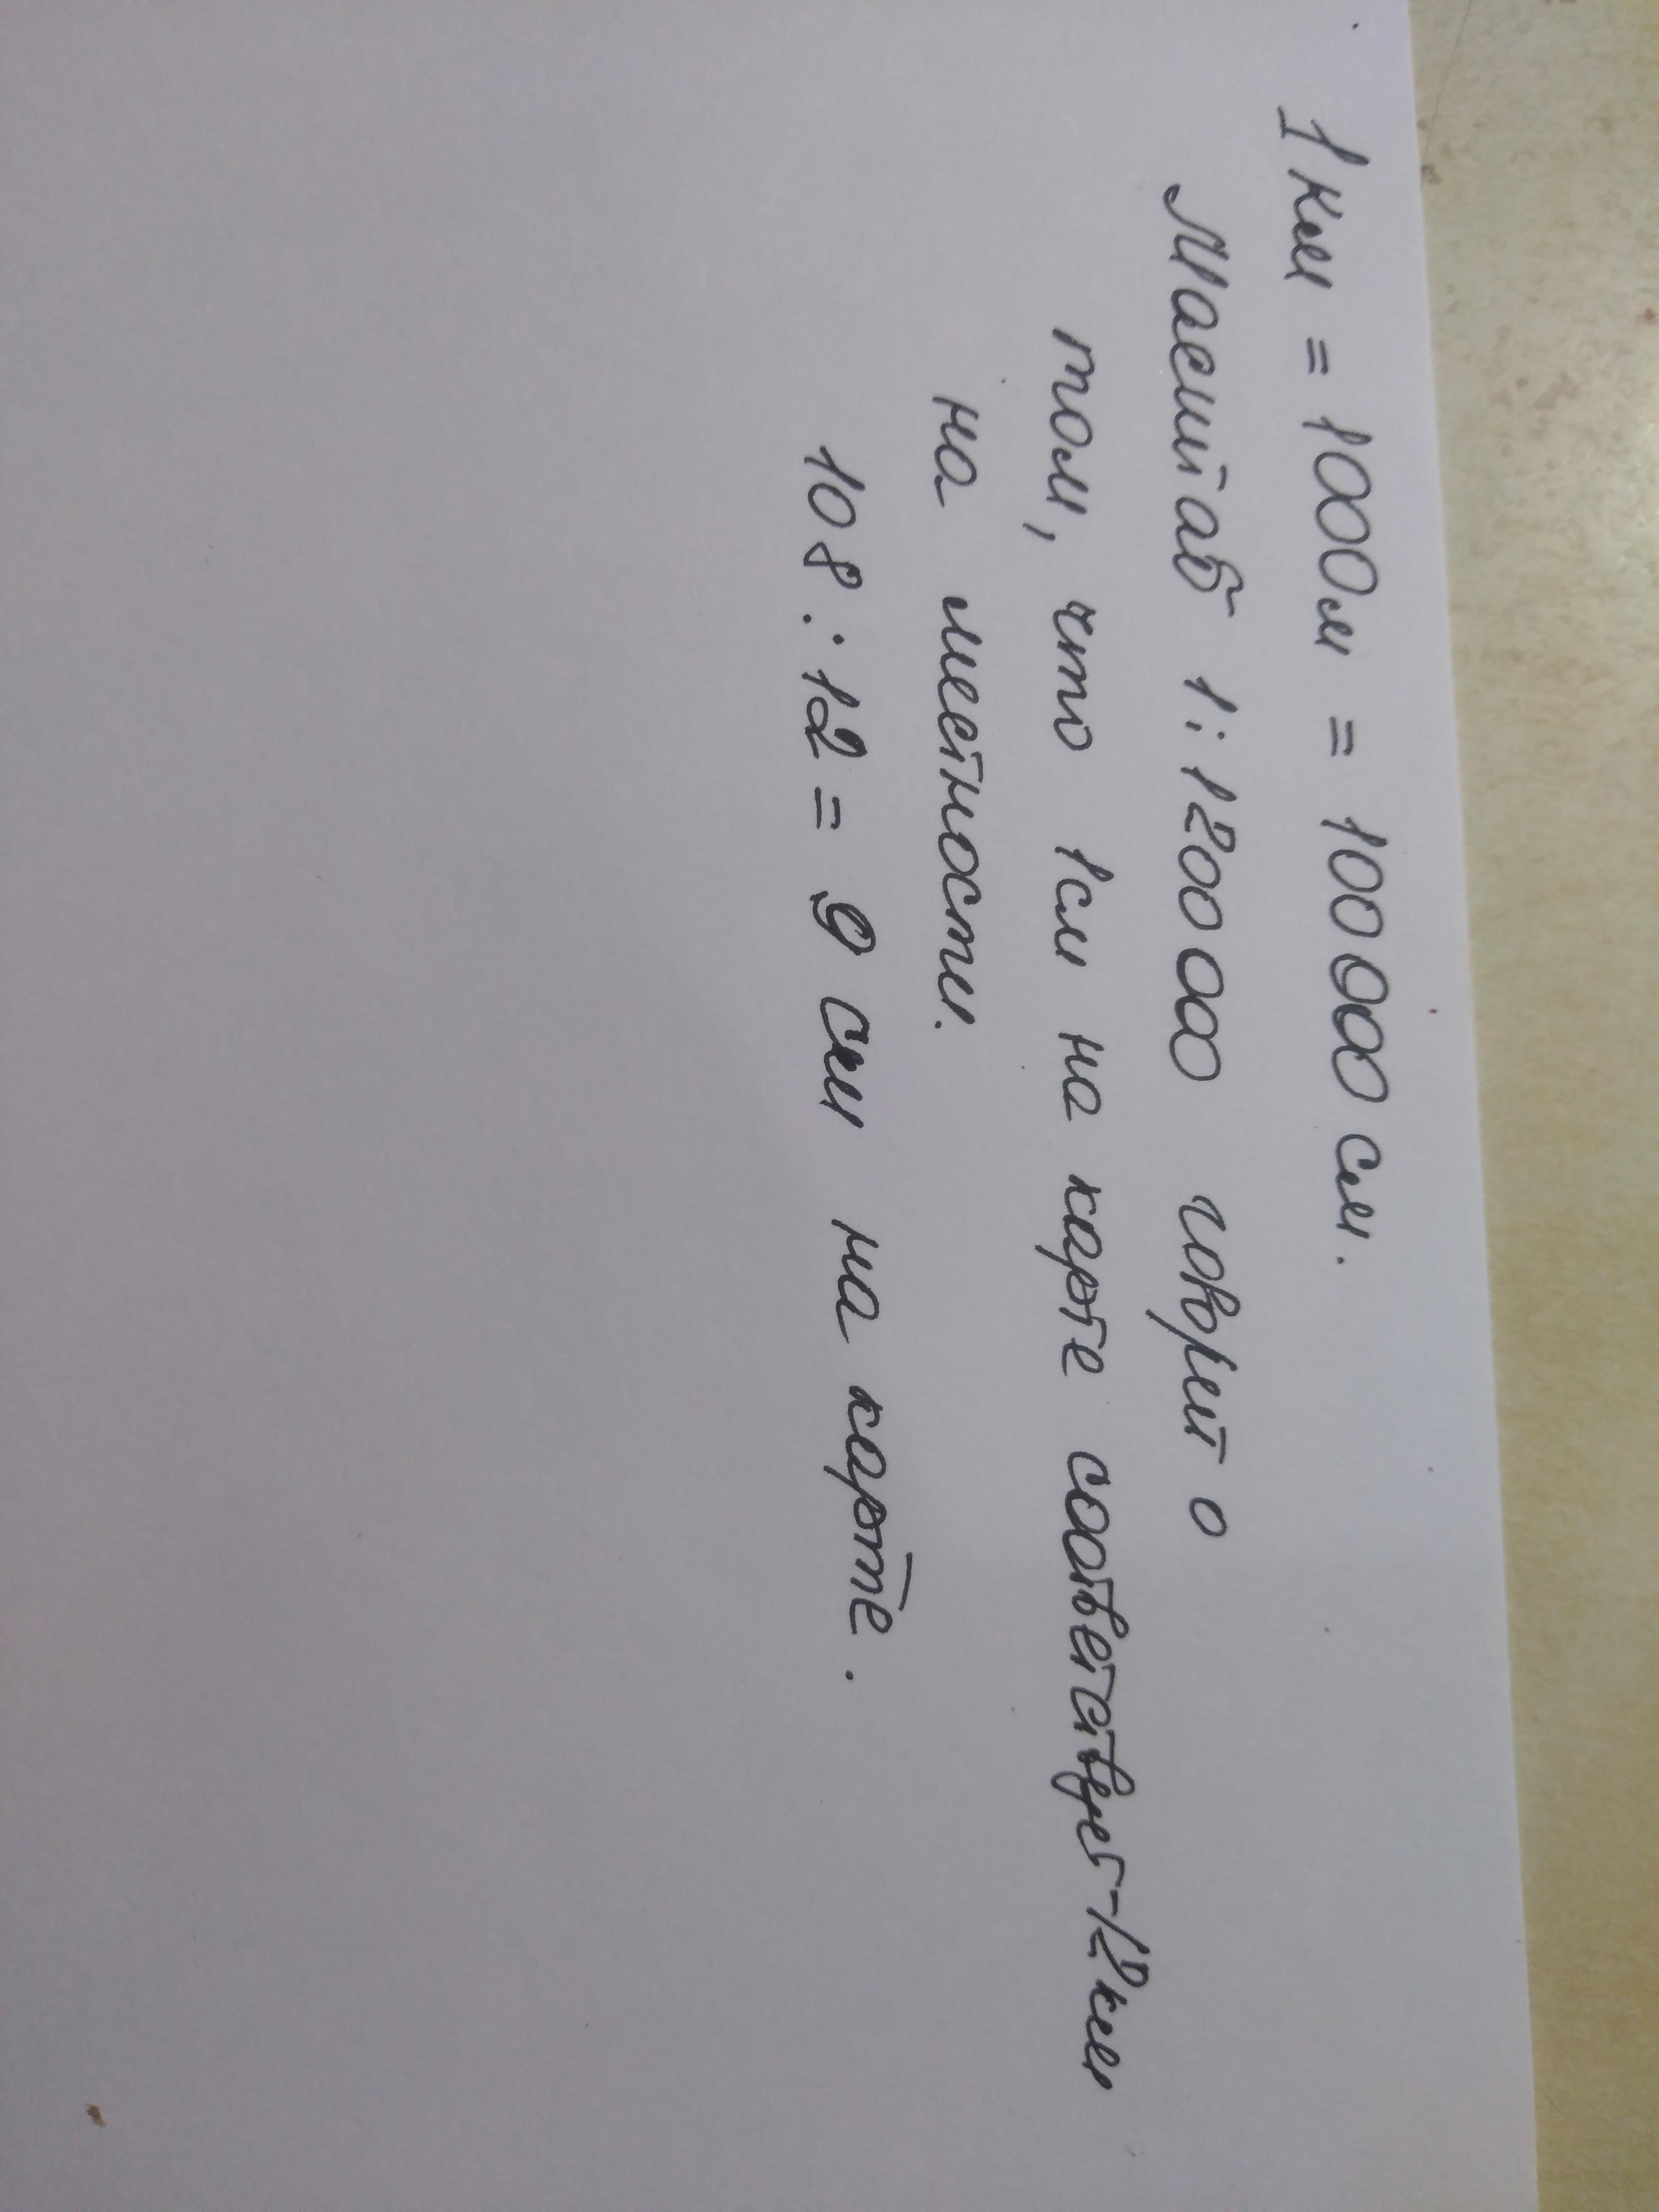 1 км = 1000м = 100 000 см.
Масштаб 1:1200 000 говорит о
том, что 1см на карте соответствует-12км
на местности.
108 : 12 = 9 см на карте.